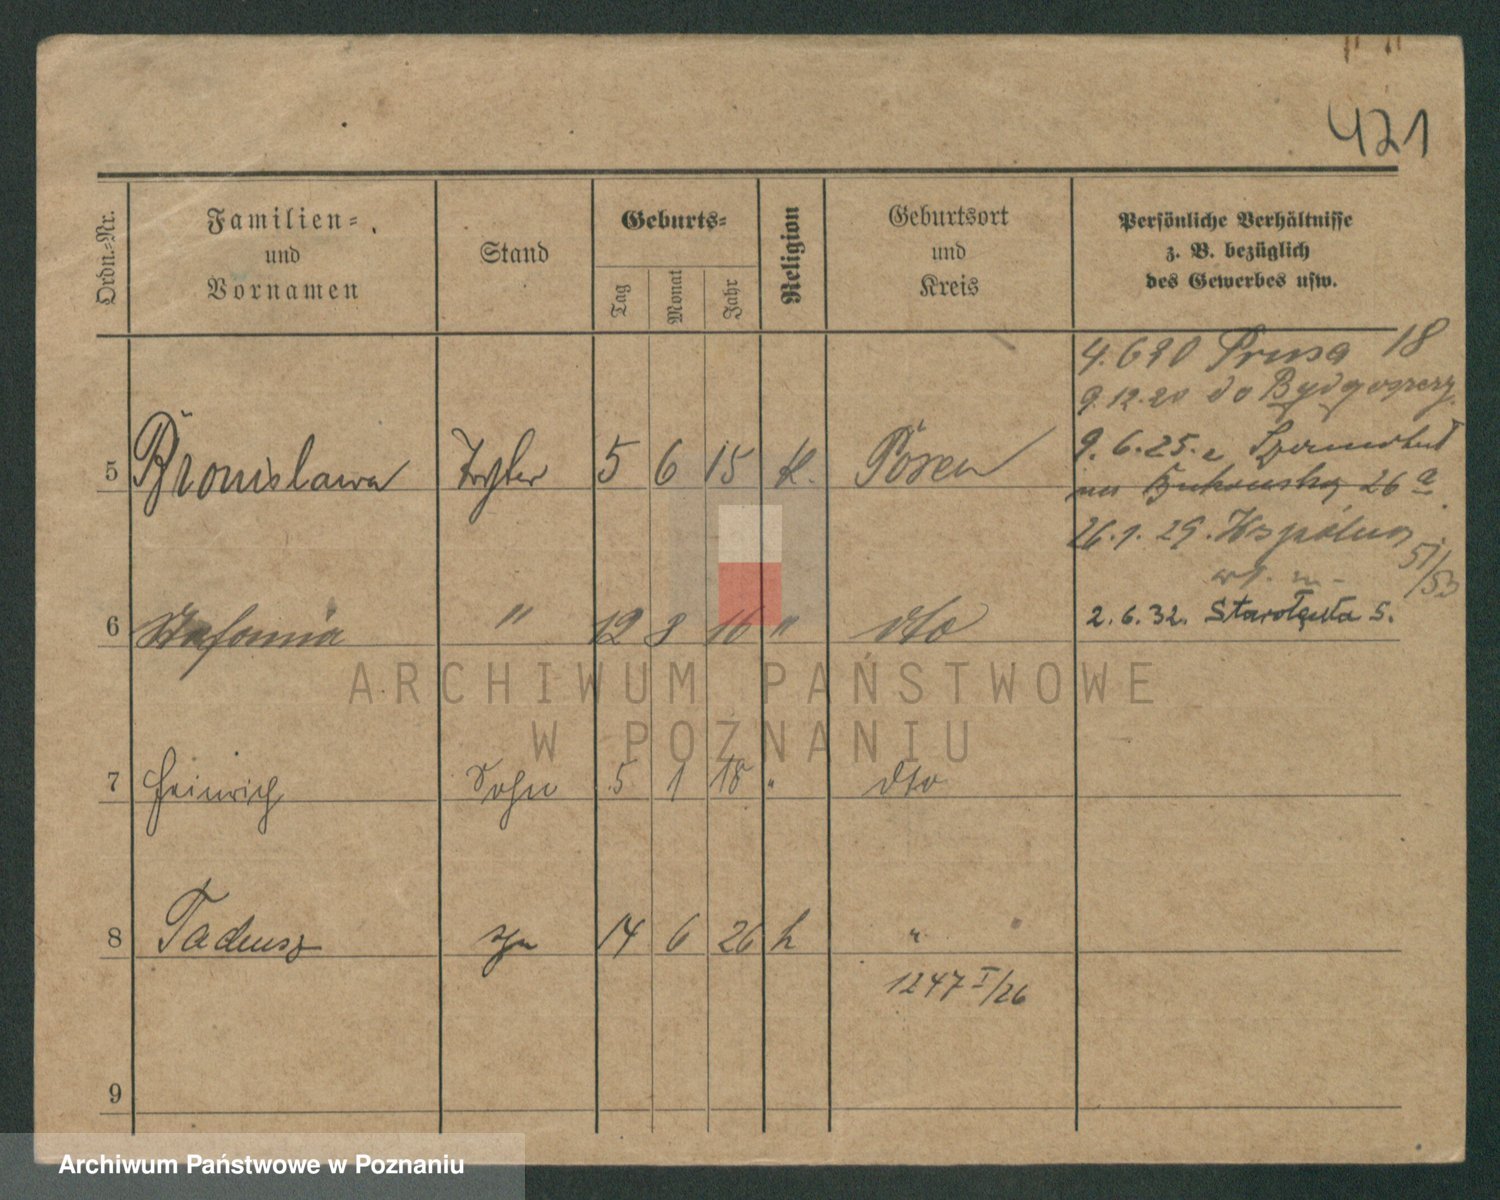 421
Ordn.-Nr.
Familien-
und
Vornamen
Stand
Geburts-
Tag
Monat
Jahr
Religion
Geburtsort
und
Kreis
Persönliche Verhältnisse
z. B. bezüglich
des Gewerbes usw.
4.6 20 Prusa 18
9.12.20 do Bydgoszcz
5 Bronislawa Tochter 5 6 15 K. Posen
9.6.25. z
Bukowska 26 a
26.1.29. Wspólna 51/53
6 Stefania " 12 8 16 " dto
2.6.32. Starołęcka 5.
ARCHIWUM PAŃSTWOWE
W POZNANIU
7 Heinrich Sohn 5 1 18 " dto
8 Tadeusz 14 6 26 k "
1247 I/26
9
Archiwum Państwowe w Poznaniu